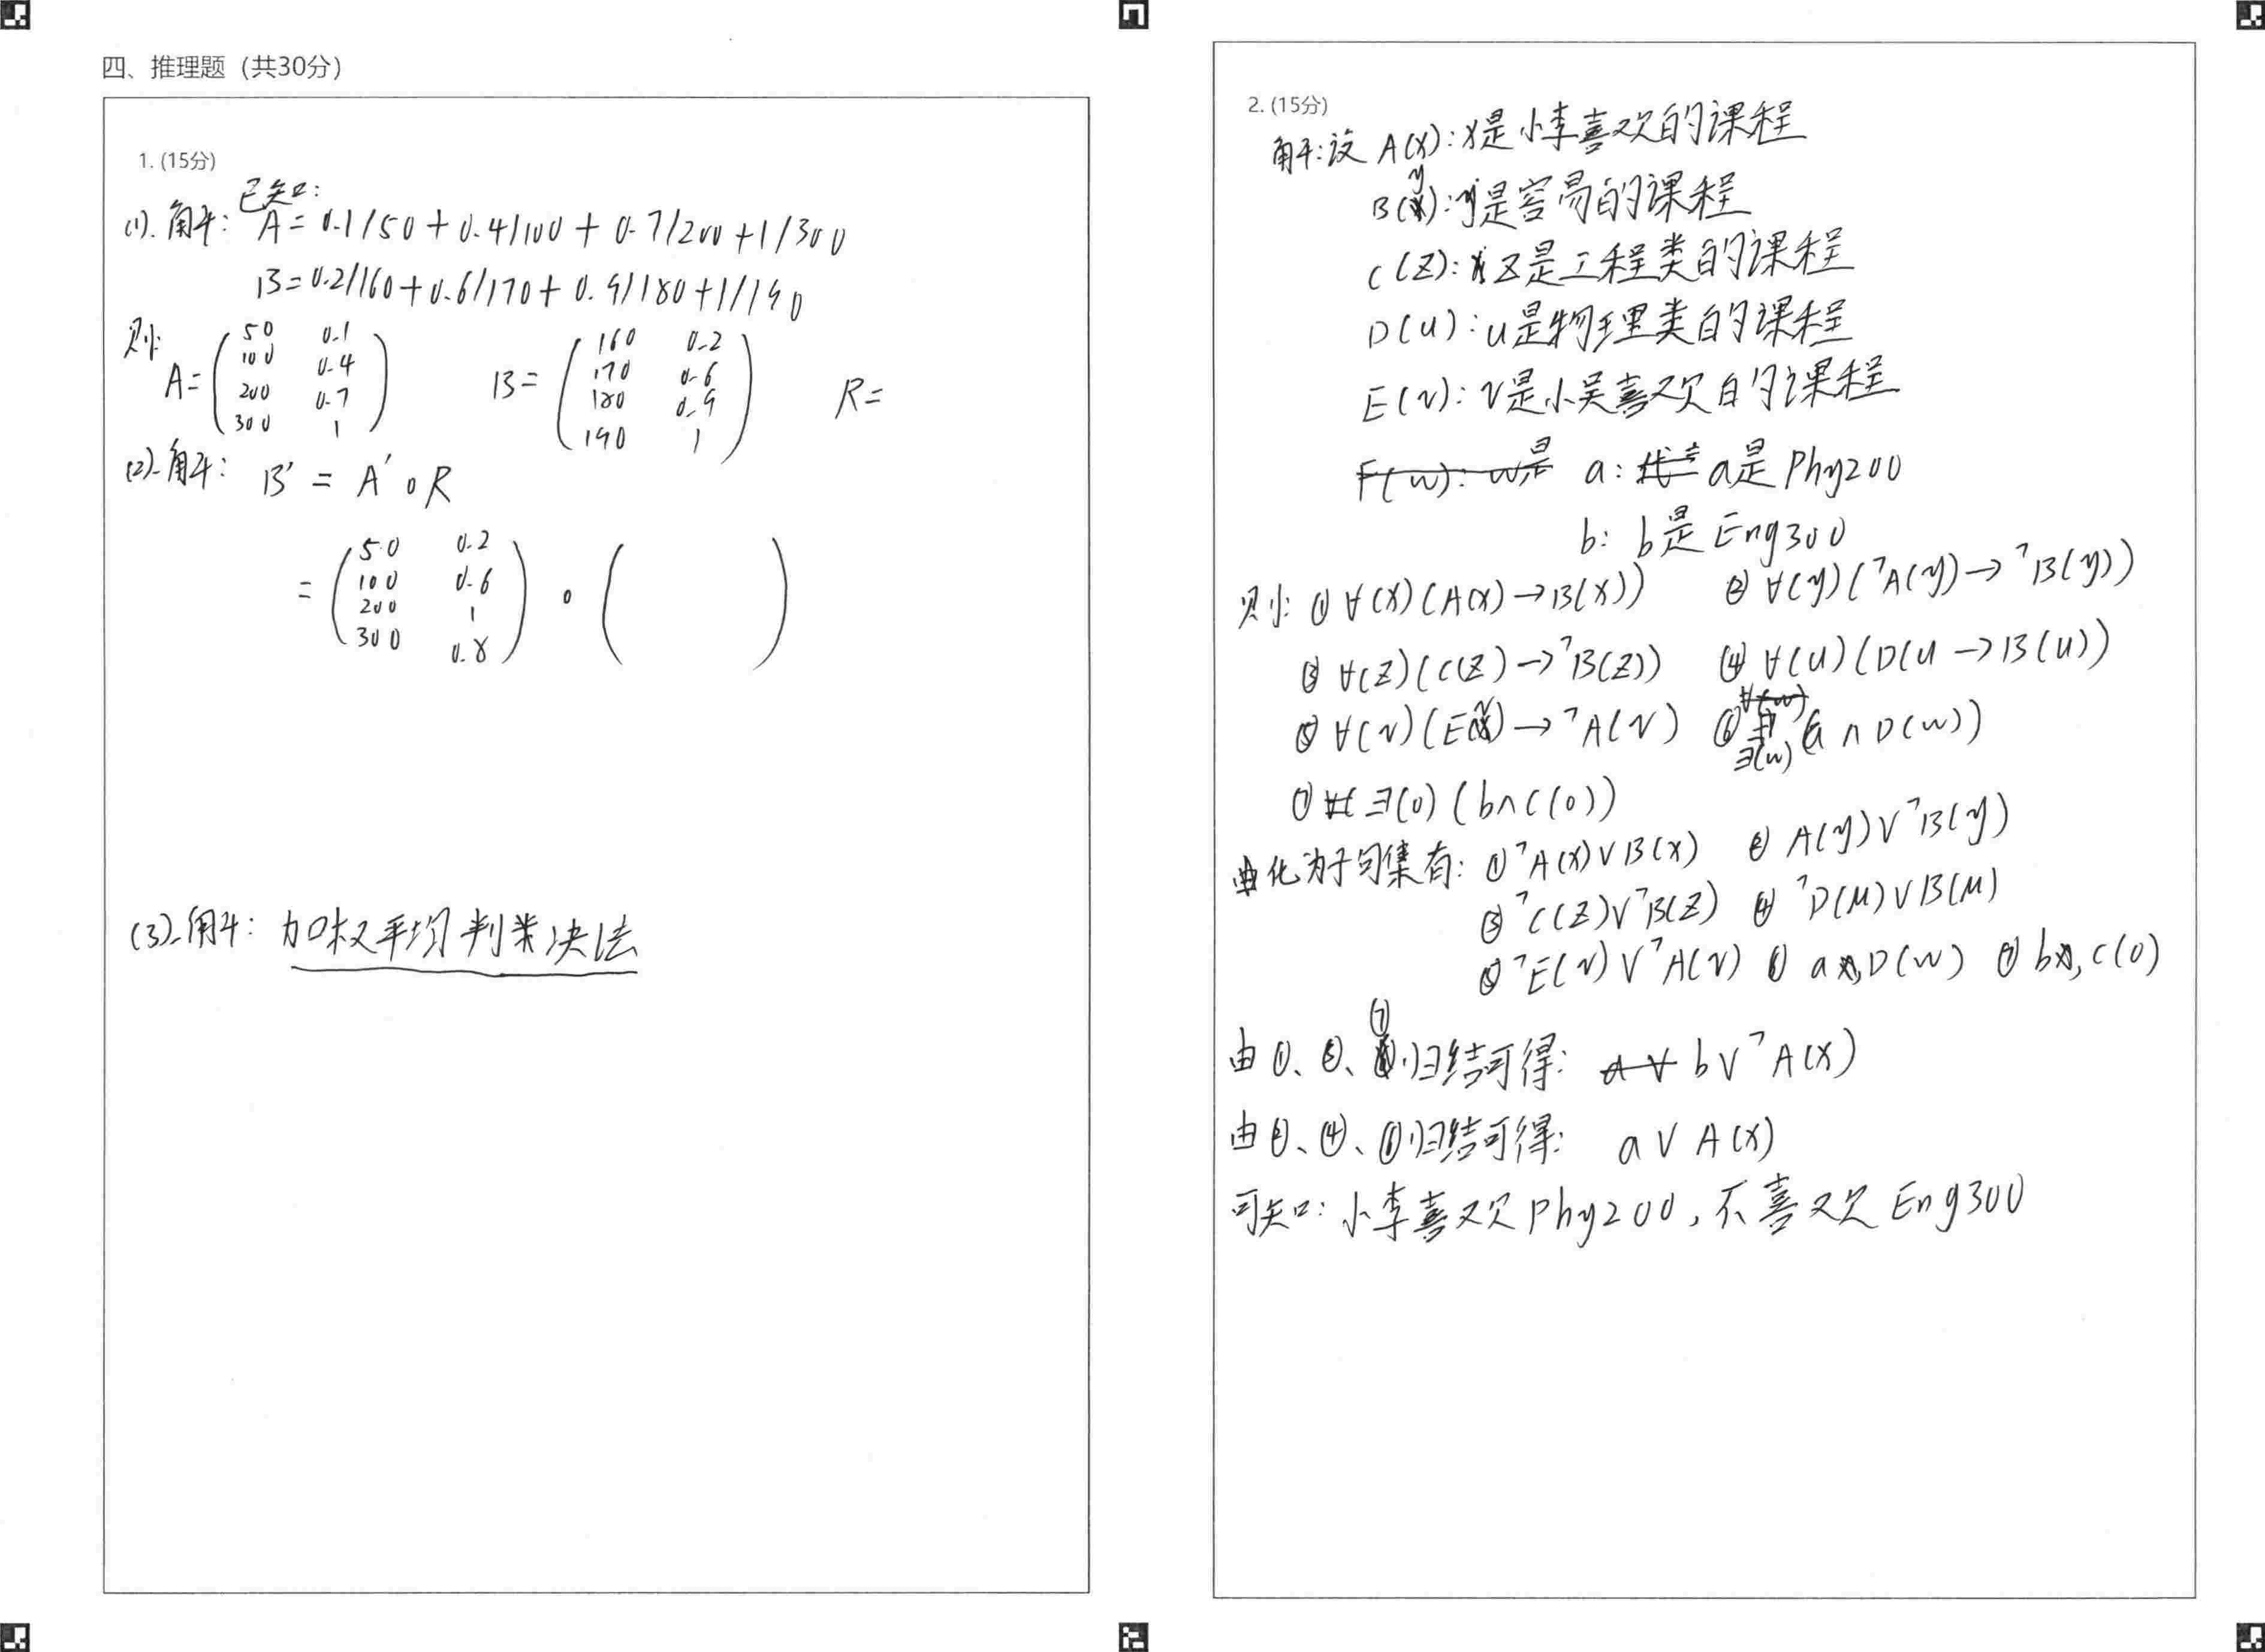 四、推理题（共30分）
1. (15分)
已知:
(1). 解: A = 0.1/50 + 0.4/100 + 0.7/200 + 1/300
B = 0.2/160 + 0.6/170 + 0.9/180 + 1/190
则:
50 0.1
100 0.4
200 0.7
300 1
A=
B=
160 0.2
170 0.6
180 0.9
190 1
R=
(2). 解: B' = A' ∘ R
= ( 50 0.2
100 0.6
200 1
300 0.8 ) ∘ ( )
(3). 解: 加权平均判决法
2. (15分)
解:设 A(x): x是小李喜欢的课程
B(y): y是容易的课程
C(Z): Z是工程类的课程
D(u): u是物理类的课程
E(v): v是小吴喜欢的课程
F(w): w是 a: a是Phy200
b: b是Eng300
则: ① ∀(x)(A(x)→B(x)) ② ∀(y)(¬A(y)→¬B(y))
③ ∀(Z)(C(Z)→¬B(Z)) ④ ∀(u)(D(u→B(u))
⑤ ∀(v)(E(v)→¬A(v) ⑥ ∃(w)(a∧D(w))
⑦ ∃(o)(b∧C(o))
化为子句集有: ①¬A(x)∨B(x) ② A(y)∨¬B(y)
③ ¬C(Z)∨¬B(Z) ④ ¬D(u)∨B(u)
⑤ ¬E(v)∨¬A(v) ⑥ a, D(w) ⑦ b, C(o)
由①、③、⑦归结可得: b∨¬A(x)
由②、④、⑥归结可得: a∨A(x)
可知: 小李喜欢Phy200, 不喜欢Eng300